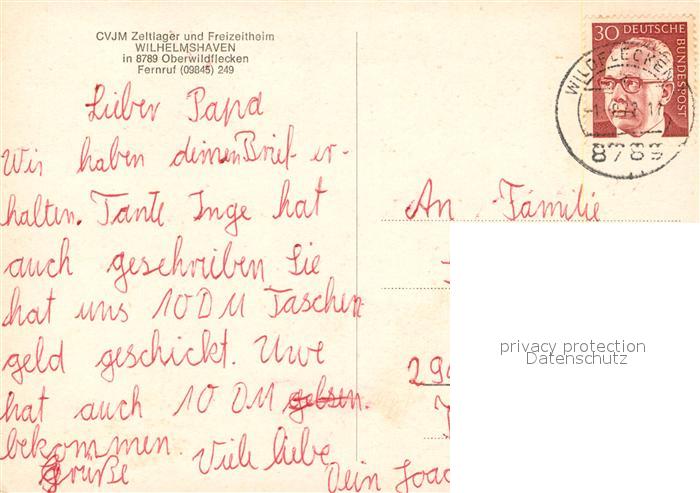 CVJM Zeltlager und Freizeitheim
WILHELMSHAVEN
in 8789 Oberwildflecken
Fernruf (09845) 249
Lieber Papa
Wir haben deinen Brief er-
halten. Tante Inge hat
auch geschrieben Sie
hat uns 10 DM Taschen-
geld geschickt. Uwe
hat auch 10 DM geben.
bekommen. Viele liebe
Grüße Dein Joac
30 DEUTSCHE
BUNDESPOST
WILDFLECKEN
8789
An Familie
privacy protection
Datenschutz